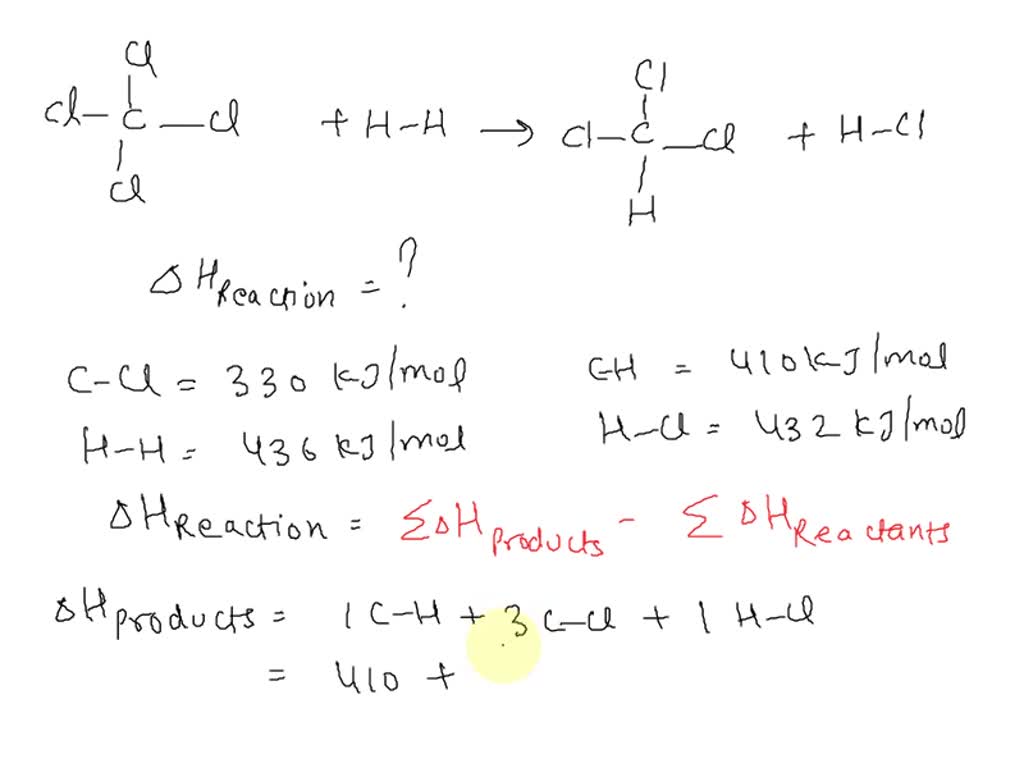 Cl Cl
Cl–C–Cl + H–H → Cl–C–Cl + H–Cl
Cl H
ΔH Reaction = ?
C–Cl = 330 kJ/mol CH = 410 kJ/mol
H–H = 436 kJ/mol H–Cl = 432 kJ/mol
ΔH Reaction = ΣΔH Products – Σ ΔH Reactants
ΔH Products = 1 C–H + 3 C–Cl + 1 H–Cl
= 410 +